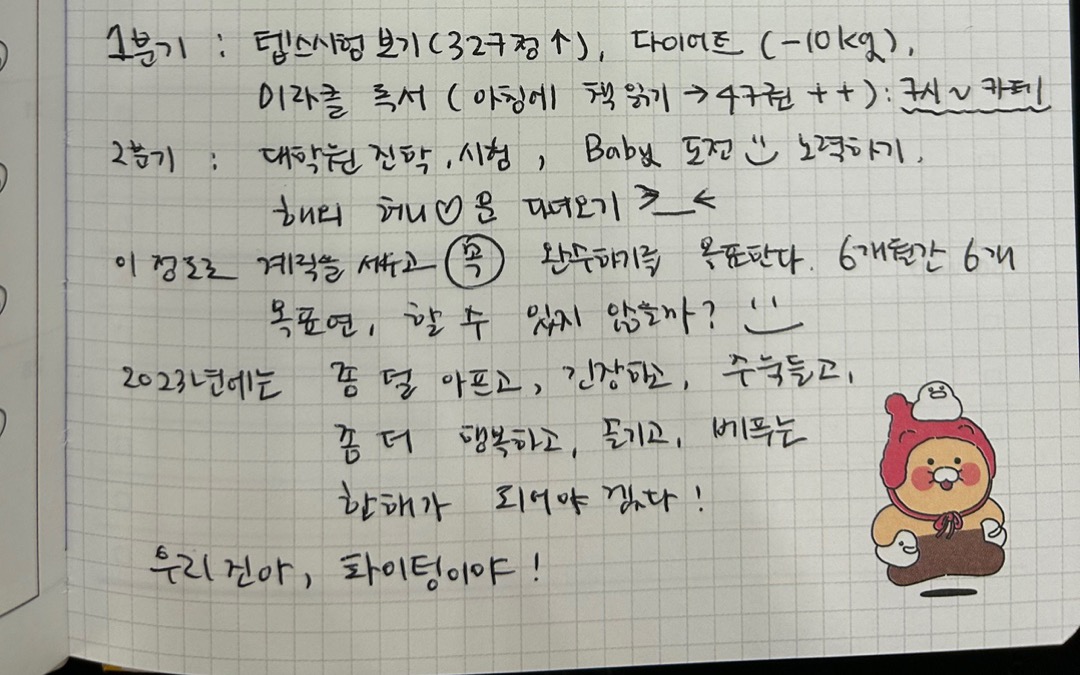 1분기 : 텝스시험 보기(327점↑), 다이어트 (-10kg),
미라클 독서 (아침에 책 읽기 → 4구권 ++): 7시~ 카페
2분기 : 대학원 진학, 시험, Baby 도전 노력하기.
해외 허니♡문 다녀오기 >_<
이 정도로 계획을 세우고 꼭 완수하기를 목표한다. 6개월간 6개
목표면, 할 수 있지 않을까?
2023년에는 좀 덜 아프고, 긴장하고, 주눅들고,
좀 더 행복하고, 즐기고, 베푸는
한해가 되어야 겠다!
우리 진아, 화이팅이야!